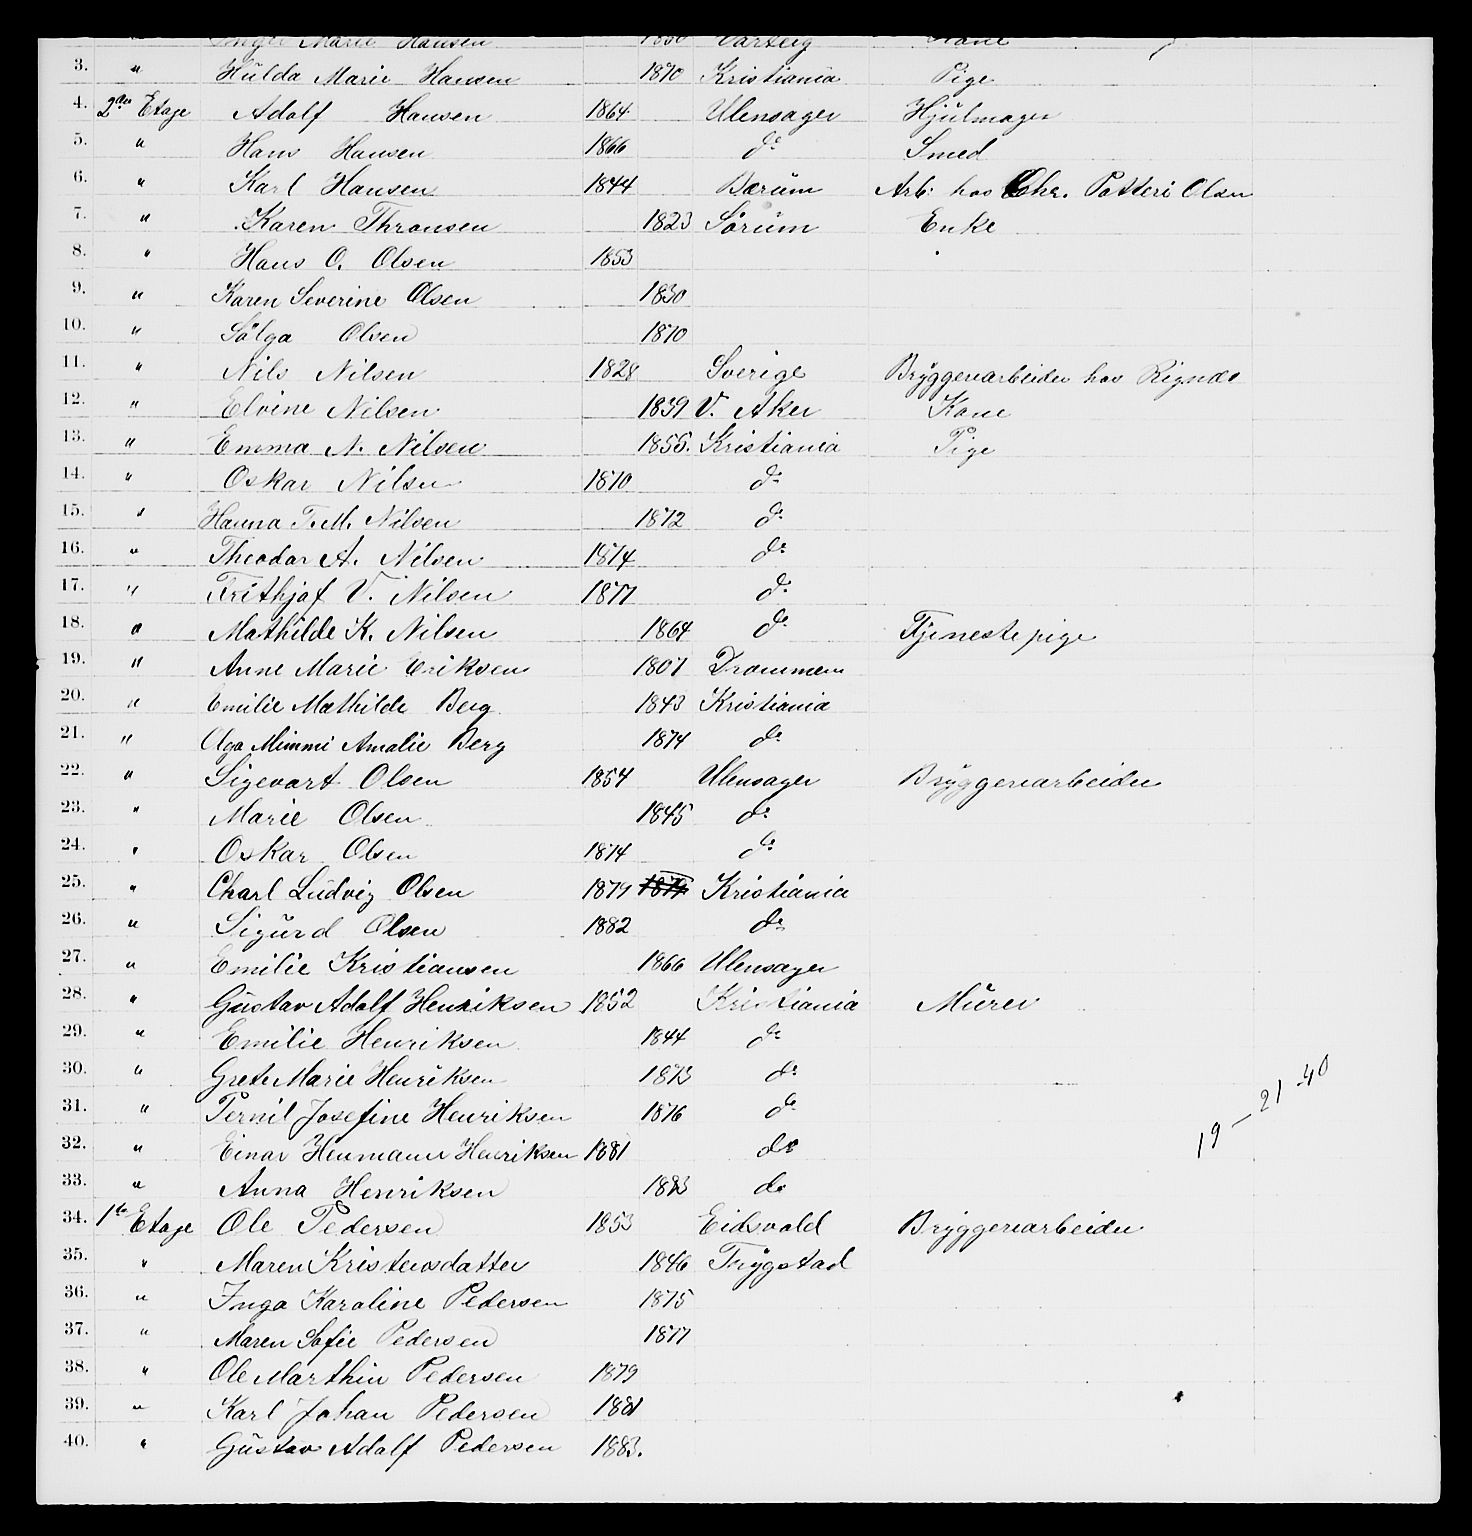 Marie Hansen 1850 Varteig Kone
3. " Hulda Marie Hansen 1870 Kristiania Pige
4. 2den Etage Adolf Hansen 1864 Ulensager Hjulmager
5. " Hans Hansen 1866 do Smed
6. " Karl Hansen 1844 Bærum Arb: hos Chr. Potteri Olsen
7. " Karen Thronsen 1823 Sörum Enke
8. " Hans O. Olsen 1853
9. " Karen Severine Olsen 1830
10. " Sölga Olsen 1870
11. " Nils Nilsen 1828 Sverige Bryggeriarbeider hos Rignæs
12. " Elvine Nilsen 1839 V. Aker Kone
13. " Emma N. Nilsen 1856. Kristiania Pige
14. " Oskar Nilsen 1870 do
15. " Hanna T. M. Nilsen 1872 do
16. " Theodor A. Nilsen 1874 do
17. " Frithjof V. Nilsen 1877 do
18. " Mathilde K. Nilsen 1864 do Tjenestepige
19. " Anne Marie Eriksen 1807 Drammen
20. " Emilie Mathilde Berg 1843 Kristiania
21. " Olga Mimmi Amalie Berg 1874 do
22. " Sigevart Olsen 1854 Ulensager Bryggeriarbeider
23. " Marie Olsen 1845 do
24. " Oskar Olsen 1874 do
25. " Charl Ludvig Olsen 1879 1879 Kristiania
26. " Sigurd Olsen 1882 do
27. " Emilie Kristiansen 1866 Ulensager
28. " Gustav Adolf Henriksen 1852 Kristiania Murer
29. " Emilie Henriksen 1844 do
30. " Grete Marie Henriksen 1873 do
31. " Pernil Josefine Henriksen 1876 do
32. " Einar Hermann Henriksen 1881 do
33. " Anna Henriksen 1883 do
19 – 21 40
34. 1ste Etage Ole Pedersen 1853 Eidsvold Bryggeriarbeider
35. " Maren Kristensdatter 1846 Trygstad
36. " Inga Karoline Pedersen 1875
37. " Maren Sofie Pedersen 1877
38. " Ole Marthin Pedersen 1879
39. " Karl Johan Pedersen 1881
40. " Gustav Adolf Pedersen 1883.